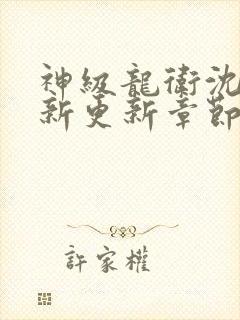 神級龍衛沈
新更新章節
許家權